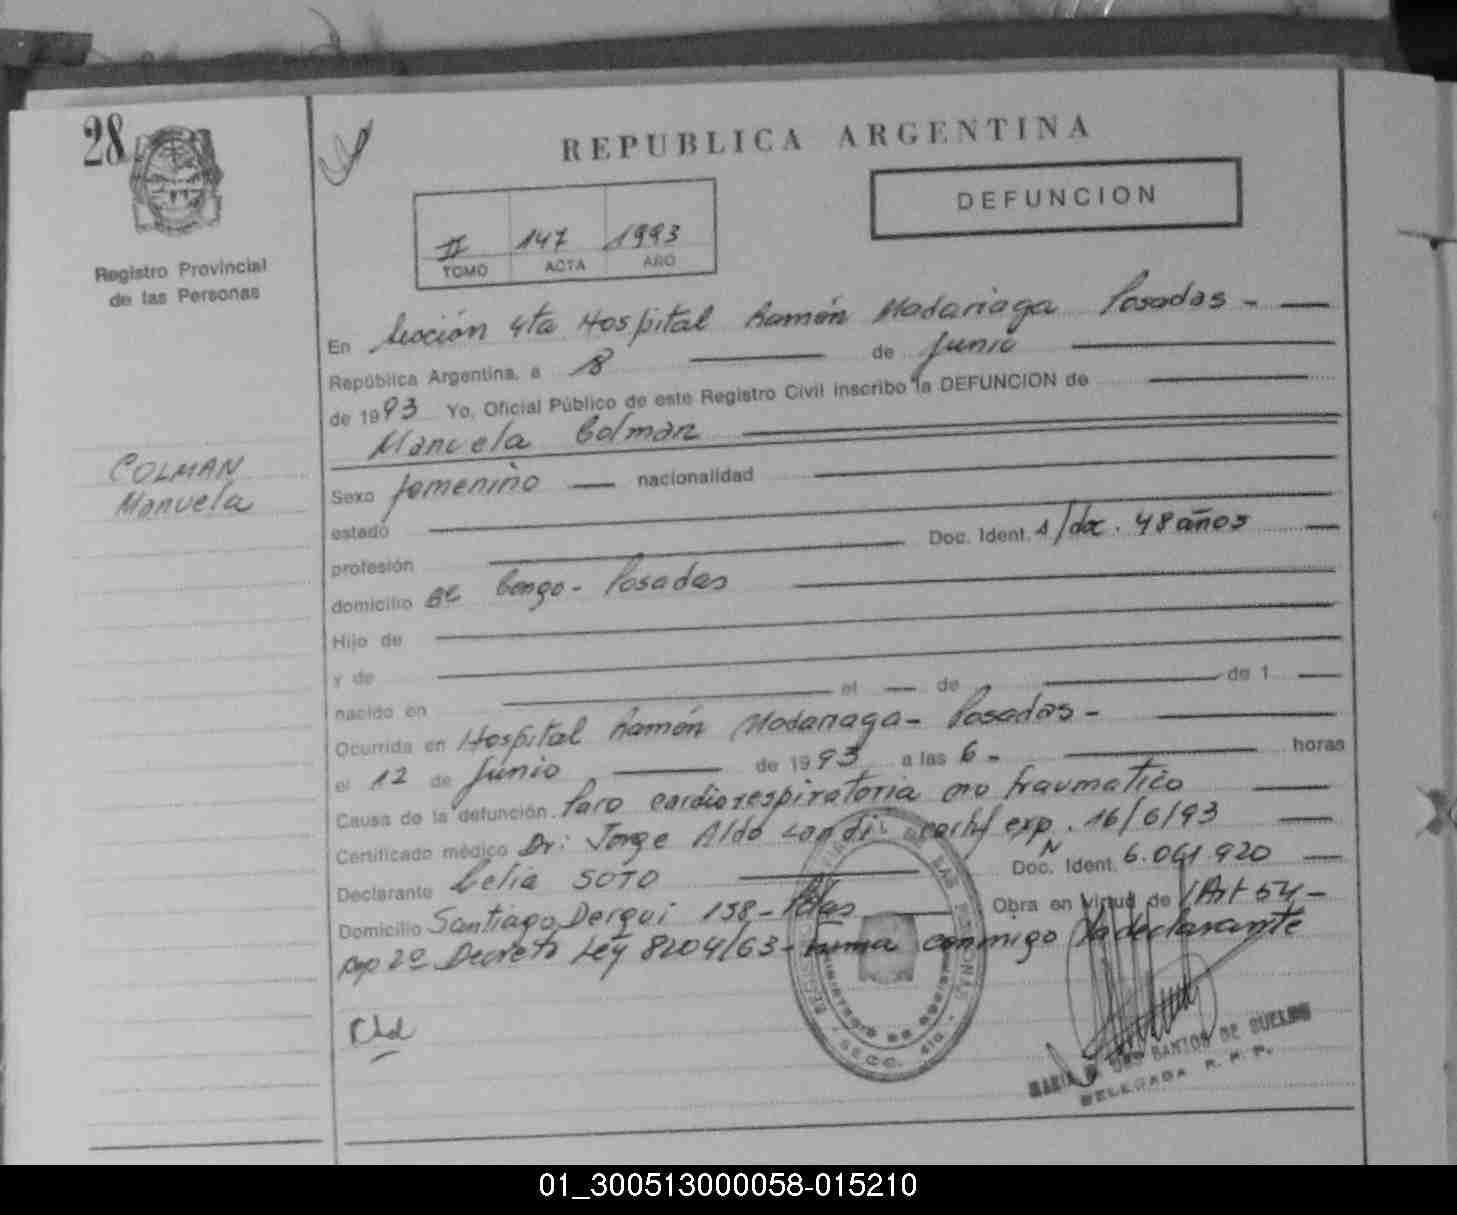 28
REPUBLICA ARGENTINA
DEFUNCION
II 147 1993
TOMO ACTA AÑO
Registro Provincial
de las Personas
En Sección 4ta Hospital Ramón Madariaga Posadas -
República Argentina, a 18 de Junio
de 1993 Yo, Oficial Público de este Registro Civil inscribo la DEFUNCION de
Manuela Colman
COLMAN
Manuela
Sexo femenino nacionalidad
estado
profesión Doc. Ident. s/doc. 48 años
domicilio Bº Congo - Posadas
Hijo de
y de
nacido en el de de 1
Ocurrida en Hospital Ramón Madariaga - Posadas -
el 12 de Junio de 1993 a las 6 - horas
Causa de la defunción Paro cardiorespiratoria no traumatico
Certificado médico Dr: Jorge Aldo Landi exp. 16/6/93
Declarante Celia SOTO Doc. Ident. Nº 6.061.920
Domicilio Santiago Derqui 158 - Pdas Obra en Virtud de Art 54 -
2º Decreto Ley 8204/63 - firma conmigo la declarante
DOS SANTOS DE BUELOS
DELEGADA R. P. P.
01_300513000058-015210